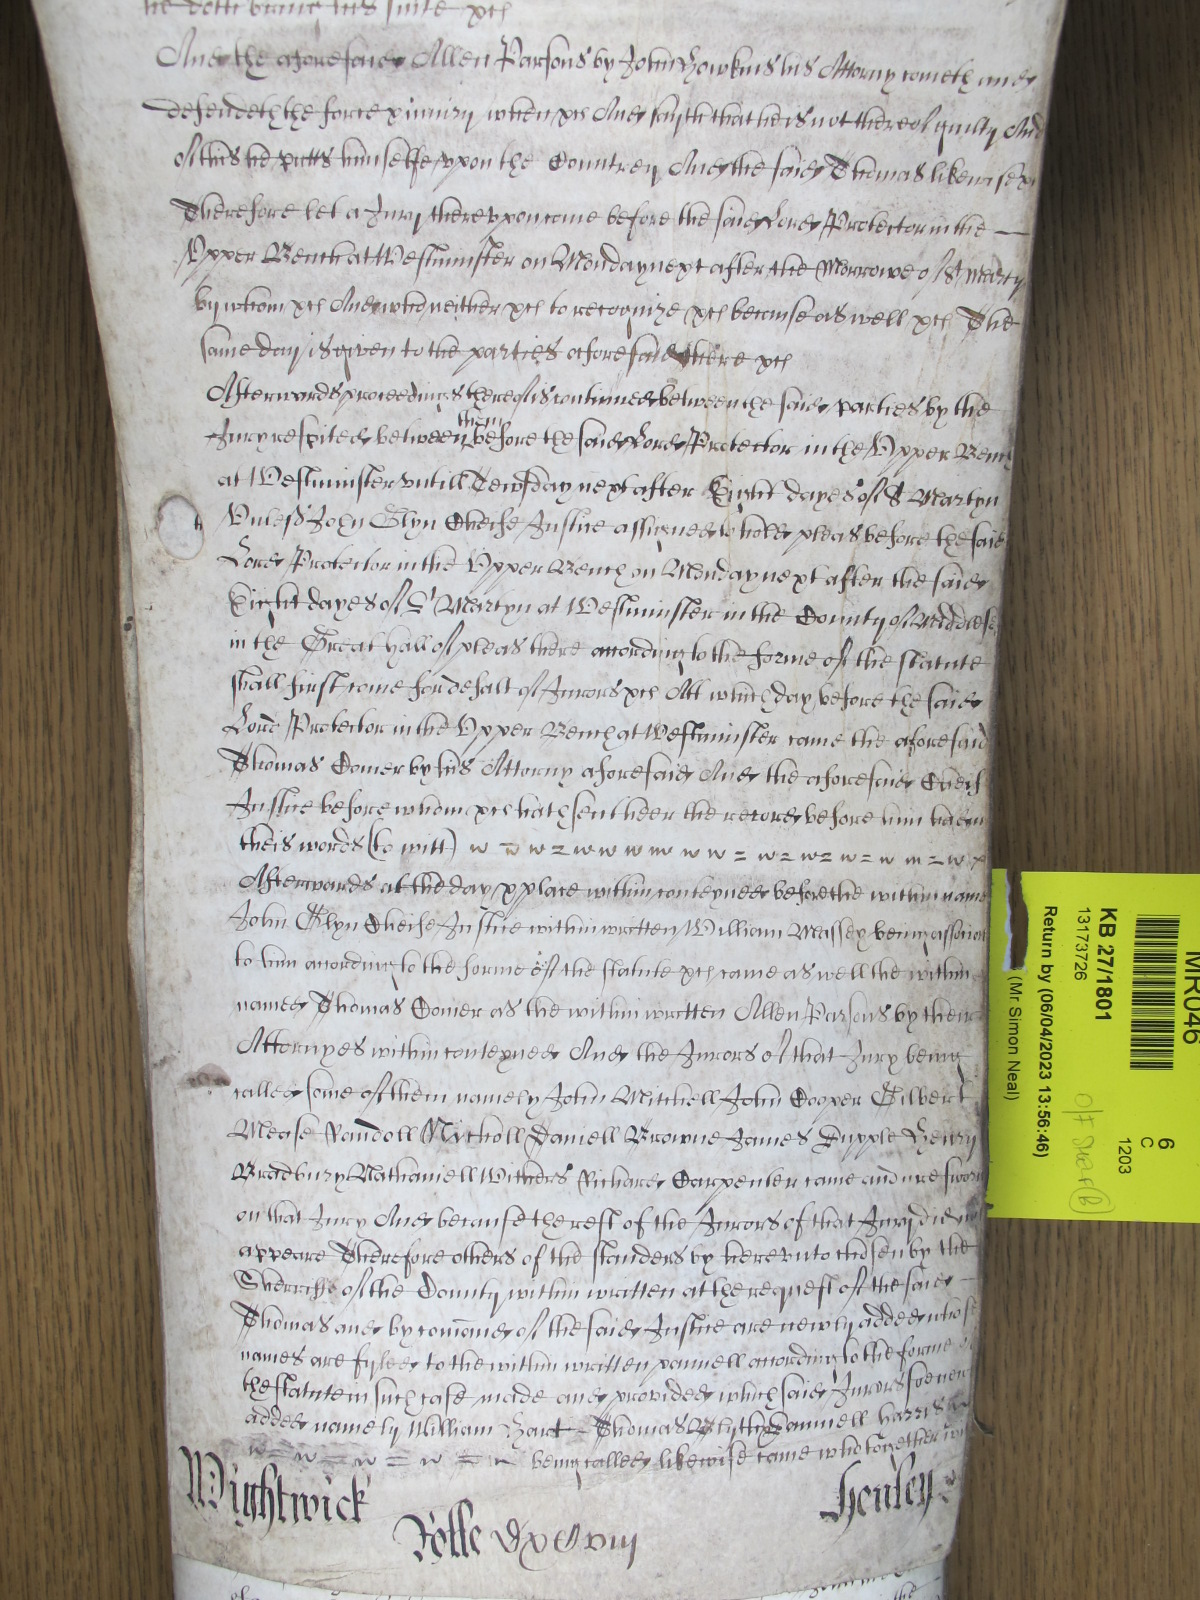 he doth bring his suite &c
And the aforesaid Allen Parsons by John Howkins his Attorny cometh and
defendeth the force & iniury when &c And sayth that he is not thereof guilty And
of this he putts himselfe vpon the Countrey And the said Thomas likewise &c
Therefore let a Jury therevpon come before the said Lord Protector in the
Vpper Bench at Westminster on Monday next after the Morrowe of St Martyn
by whom &c And who neither &c to recognize &c because as well &c The
same day is given to the parties aforesaid there &c
Afterwards proceedings thereof is continued betweene the said parties by the
Jury respited between them before the said Lord Protector in the Vpper Bench
at Westminster vntill Tewsday next after Eight dayes of St Martyn
Vnless John Glyn Cheife Justice assigned to hold pleas before the said
Lord Protector in the Vpper Bench on Monday next after the said
Eight dayes of St Martyn at Westminster in the County of Middlesex
in the Great hall of pleas there according to the forme of the statute
shall first come for defalt of Jurors &c Att which day before the said
Lord Protector in the Vpper Bench at Westminster came the aforesaid
Thomas Comer by his Attorny aforesaid And the aforesaid Cheif
Justice before whom &c hath sent heer the record before him had in
theis words (to witt)
Afterwards at the day & place within conteyned before the within named
John Glyn Cheife Justice within written William Massey being associat
to him according to the forme of the statute &c came as well the within
named Thomas Comer as the within written Allen Parsons by their
Attornyes within conteyned And the Jurors of that Jury being
called some of them namely John Mitchell John Cooper Gilbert
Mease Randoll Nycholl Daniell Browne James Supple Henry
Bradbury Nathaniell Withers Richard Carpenter came and are sworn
on that Jury And because the rest of the Jurors of that Jury did not
appeare Therefore others of the standers by herevnto chosen by the
Sherriffe of the County within written at the request of the said
Thomas and by comand of the said Justice are newly added whose
names are fyled to the within written pannell according to the forme of
the statute in such case made and provided which said Jurors soe newly
added namely William Hart Thomas Blyth Samuell Harris
being called likewise came who together with
Wightwick Henley
Rolle
MR046
6
C
1203
KB 27/1801
13173726
Return by (06/04/2023 13:56:46)
(Mr Simon Neal)